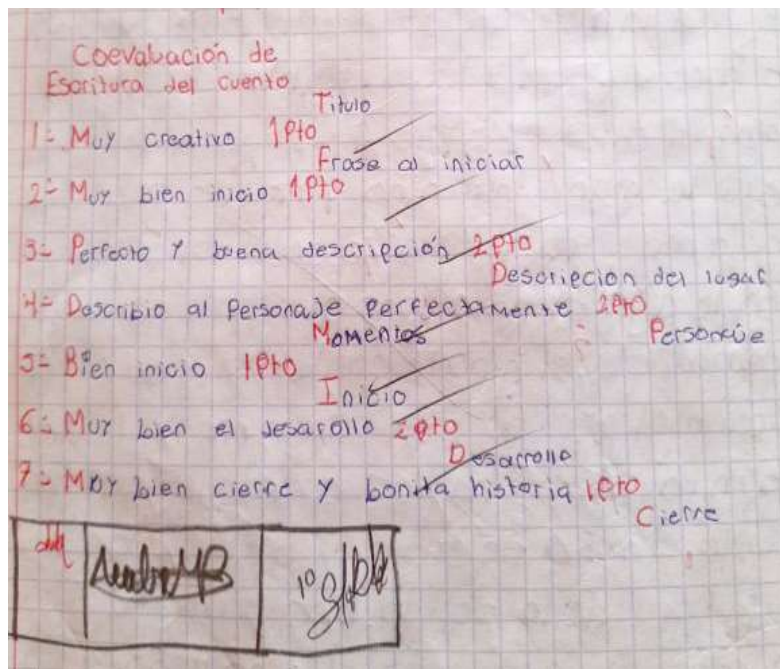 Coevaluación de
Escritura del cuento
Titulo
1- Muy creativo 1pto
Frase al iniciar
2- Muy bien inicio 1pto
3- Perfecto y buena descripción 2pto
Descripcion del lugar
4- Describio al Personaje perfectamente 2pto
Momentos Personaje
5- Bien inicio 1pto
Inicio
6- Muy bien el desarollo 2pto
Desarrollo
7- Muy bien cierre y bonita historia 1pto
Cierre